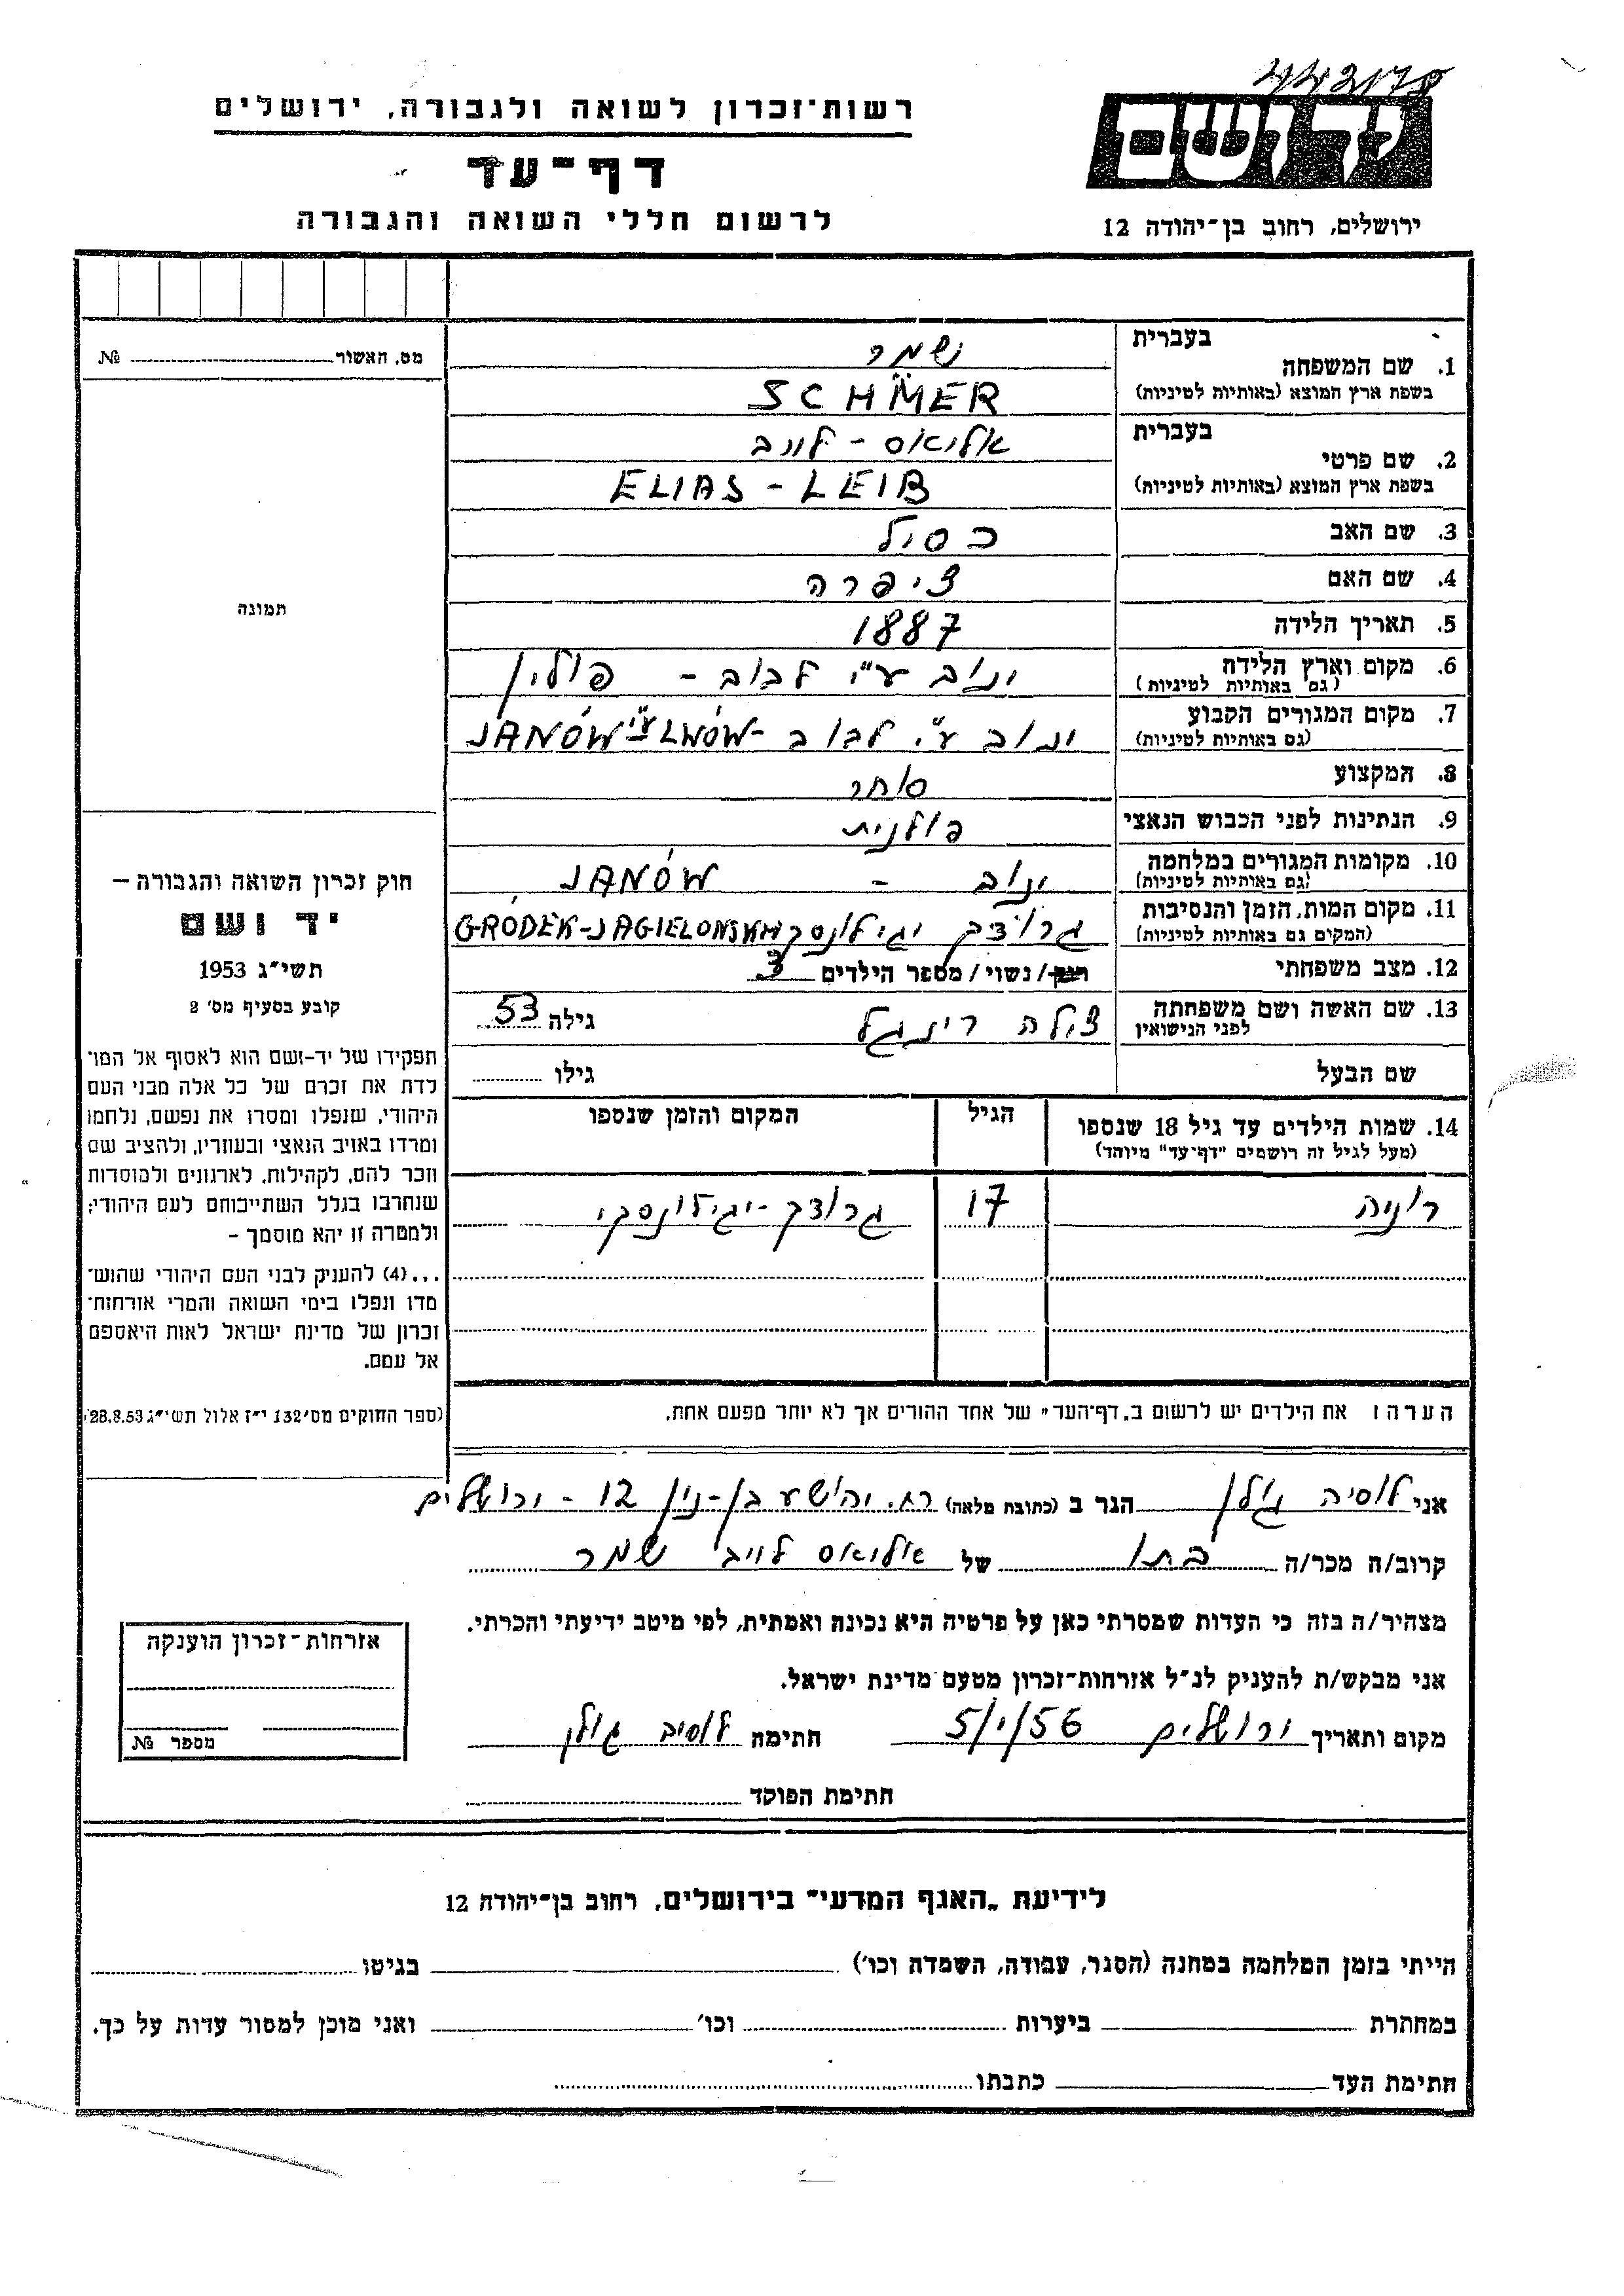 442178
רשות־זכרון לשואה ולגבורה, ירושלים
יד ושם
דף־עד
לרשום חללי השואה והגבורה
ירושלים, רחוב בן־יהודה 12
מס. האשור № 
תמונה
חוק זכרון השואה והגבורה –
יד ושם
תשי״ג 1953
קובע בסעיף מס׳ 2
תפקידו של יד-ושם הוא לאסוף אל המו־
לדת את זכרם של כל אלה מבני העם
היהודי, שנפלו ומסרו את נפשם, נלחמו
ומרדו באויב הנאצי ובעוזריו, ולהציב שם
וזכר להם, לקהילות, לארגונים ולמוסדות
שנחרבו בגלל השתייכותם לעם היהודי;
ולמטרה זו יהא מוסמך –
...(4) להעניק לבני העם היהודי שהוש־
מדו ונפלו בימי השואה והמרי אזרחות־
זכרון של מדינת ישראל לאות היאספם
אל עמם.
(ספר החוקים מס׳132 י״ז אלול תשי״ג 28.8.53)
בעברית
1. שם המשפחה שמר
בשפת ארץ המוצא (באותיות לטיניות) SCHMER
בעברית
2. שם פרטי אליאס - לייב
בשפת ארץ המוצא (באותיות לטיניות) ELIAS - LEIB
3. שם האב
4. שם האם ציפרה
5. תאריך הלידה 1887
6. מקום וארץ הלידה ינוב ע״י לבוב - פולין
(גם באותיות לטיניות)
7. מקום המגורים הקבוע ינוב ע״י לבוב - JANÓW ע״י LWÓW
(גם באותיות לטיניות)
8. המקצוע סוחר
9. הנתינות לפני הכבוש הנאצי פולנית
10. מקומות המגורים במלחמה ינוב - JANÓW
(גם באותיות לטיניות)
11. מקום המות, הזמן והנסיבות גרודק יגילונסקי GRÓDEK-JAGIELONSKI
(המקום גם באותיות לטיניות)
12. מצב משפחתי רווק/נשוי/מספר הילדים 3
13. שם האשה ושם משפחתה צילה רינגל גילה 53
לפני הנישואין
שם הבעל גילו
14. שמות הילדים עד גיל 18 שנספו הגיל המקום והזמן שנספו
(מעל לגיל זה רושמים "דף־עד" מיוחד)
רוניה 17 גרודק-יגילונסקי
הערה : את הילדים יש לרשום ב„דף־העד" של אחד ההורים אך לא יותר מפעם אחת.
אני לוסיה גולן הגר ב (כתובת מלאה) רח. יהושע בן-נון 12 - ירושלים
קרוב/ה מכר/ה בתו של אליאס לייב שמר
מצהיר/ה בזה כי העדות שמסרתי כאן על פרטיה היא נכונה ואמתית, לפי מיטב ידיעתי והכרתי.
אני מבקש/ת להעניק לנ״ל אזרחות־זכרון מטעם מדינת ישראל.
מקום ותאריך ירושלים 5/I/56 חתימה לוסיה גולן
חתימת הפוקד
אזרחות־זכרון הוענקה
מספר №
לידיעת „האגף המדעי" בירושלים, רחוב בן־יהודה 12
הייתי בזמן המלחמה במחנה (הסגר, עבודה, השמדה וכו׳) בגיטו
במחתרת ביערות וכו׳ ואני מוכן למסור עדות על כך.
חתימת העד כתבתו